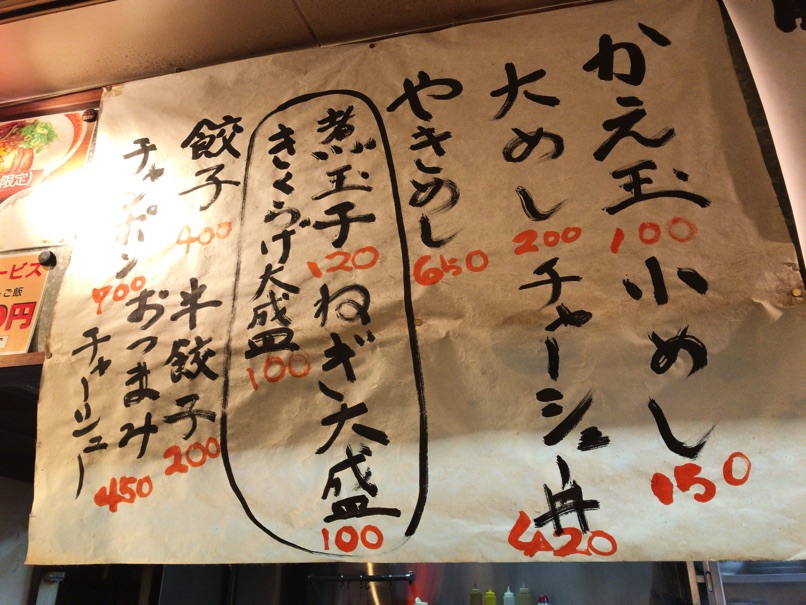 かえ玉 100
小めし 150
大めし 200
チャーシュー丼 420
やきめし 650
煮玉子 120
ねぎ大盛 100
きくらげ大盛 100
餃子 400
半餃子 200
チャンポン 900
おつまみ
チャーシュー 450
限定)
ービス
ご飯
0円